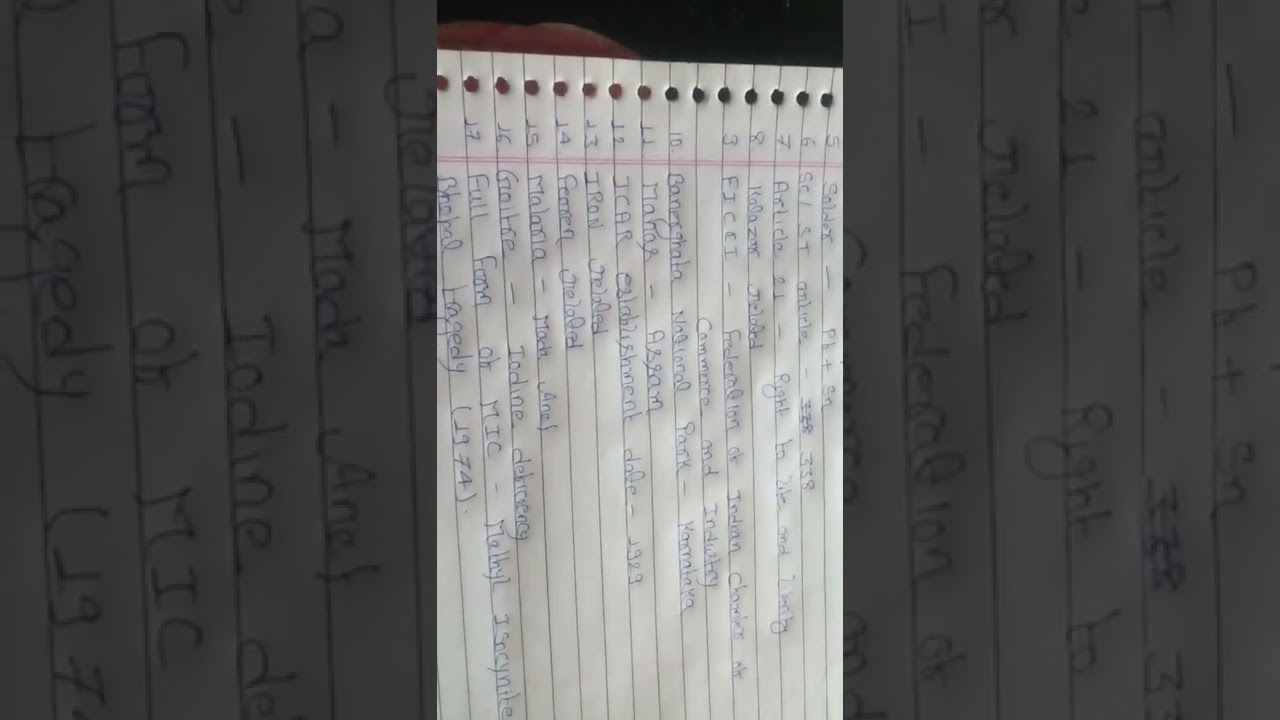 5 Solder - Pb + Sn
6 SC/ST article - 338
7. Article 21 - Right to life and
8. Kalazar related
9 FICCI - Federation of Indian Chamber of
Commerce and Industry
10. Banerghata National Park - Karnataka
11 Manas - Assam
12 ICAR establishment date - 1929
13 IRON related
14 related
15 Malaria -
16. Goitre - Iodine deficiency
17 Full Form of MIC - Methyl Isocynite
Bhopal tragedy (1974).